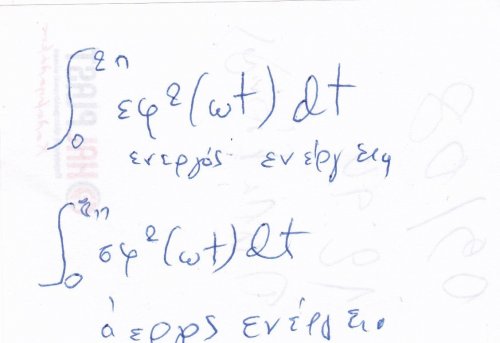 ∫₀^{2π} εφ²(ωt) dt
ενεργός ενέργεια
∫₀^{2π} σφ²(ωt) dt
άεργος ενέργεια